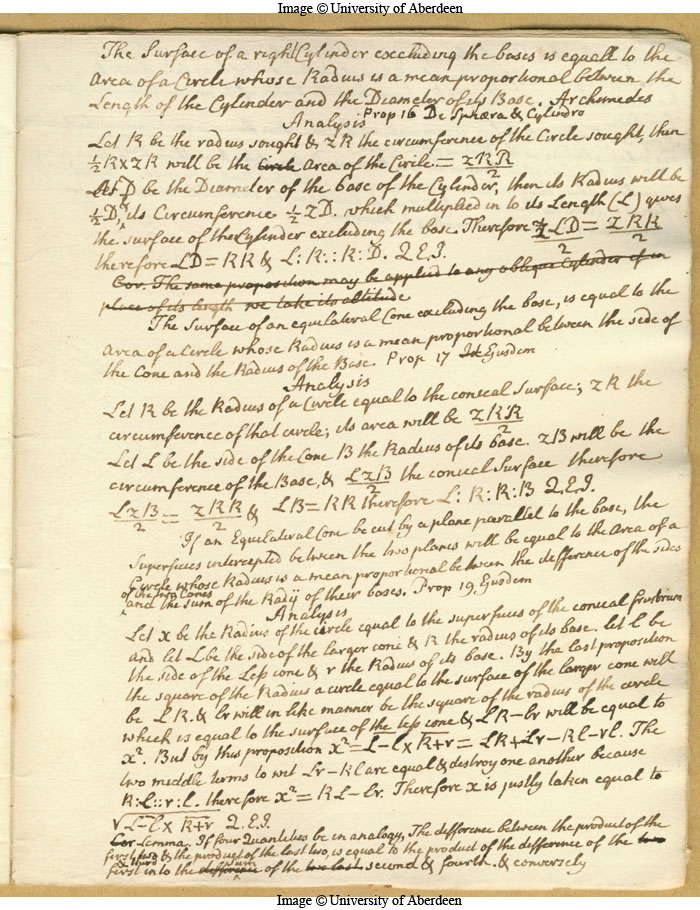 Image © University of Aberdeen
The Surface of a right Cylinder excluding the bases is equall to the
Area of a Circle whose Radius is a mean proportional between the
Length of the Cylinder and the Diameter of its Base. Archimedes
Prop 16 De Sphæra & Cylindro
Analysis
Let R be the radius sought & zR the circumference of the Circle sought, then
½R×zR will be the Circle Area of the Circle = zRR/2
Let D be the Diameter of the base of the Cylinder, then its Radius will be
½D, its Circumference ½zD. which multiplied in to its Length (L) gives
the surface of the Cylinder excluding the base. Therefore zLD/2 = zRR/2
therefore LD = RR & L:R::R:D. Q.E.I.
Cor. The same proposition may be applied to any oblique Cylinder if in
place of its length we take its altitude
The Surface of an equilateral Cone excluding the base, is equal to the
Area of a Circle whose Radius is a mean proportional between the side of
the Cone and the Radius of the Base. Prop 17 Ejusdem
Analysis
Let R be the Radius of a Circle equal to the conical Surface; zR the
circumference of that circle; its area will be zRR/2
Let L be the side of the Cone B the Radius of its base. zB will be the
circumference of the Base, & LzB/2 the conical Surface therefore
LzB/2 = zRR/2 & LB = RR therefore L:R:R:B Q.E.I.
If an Equilateral Cone be cut by a plane parallel to the base, the
Superficies intercepted between the two planes will be equal to the Area of a
Circle whose Radius is a mean proportional between the difference of the sides
of the two Cones
and the sum of the Radij of their bases. Prop 19 Ejusdem
Analysis
Let x be the Radius of the circle equal to the superfices of the conical frustrum
and let L be the side of the larger cone & R the radius of its base. let l be
the side of the Less cone & r the Radius of its base. By the last proposition
the square of the Radius a circle equal to the surface of the larger cone will
be LR. & lr will in like manner be the square of the radius of the circle
which is equal to the surface of the less cone & LR − lr will be equal to
x². But by this proposition x² = L−l × R+r = LR + Lr − Rl − rl. The
two middle terms to wit Lr − Rl are equal & destroy one another because
R:L::r:l. therefore x² = RL − lr. Therefore x is justly taken equal to
√L−l × R+r Q.E.I.
Cor Lemma. If four Quantities be in analogy, The difference between the product of the
first two & the product of the last two, is equal to the product of the difference of the two
& third sum
first into the difference of the two last second & fourth. & conversely
Image © University of Aberdeen